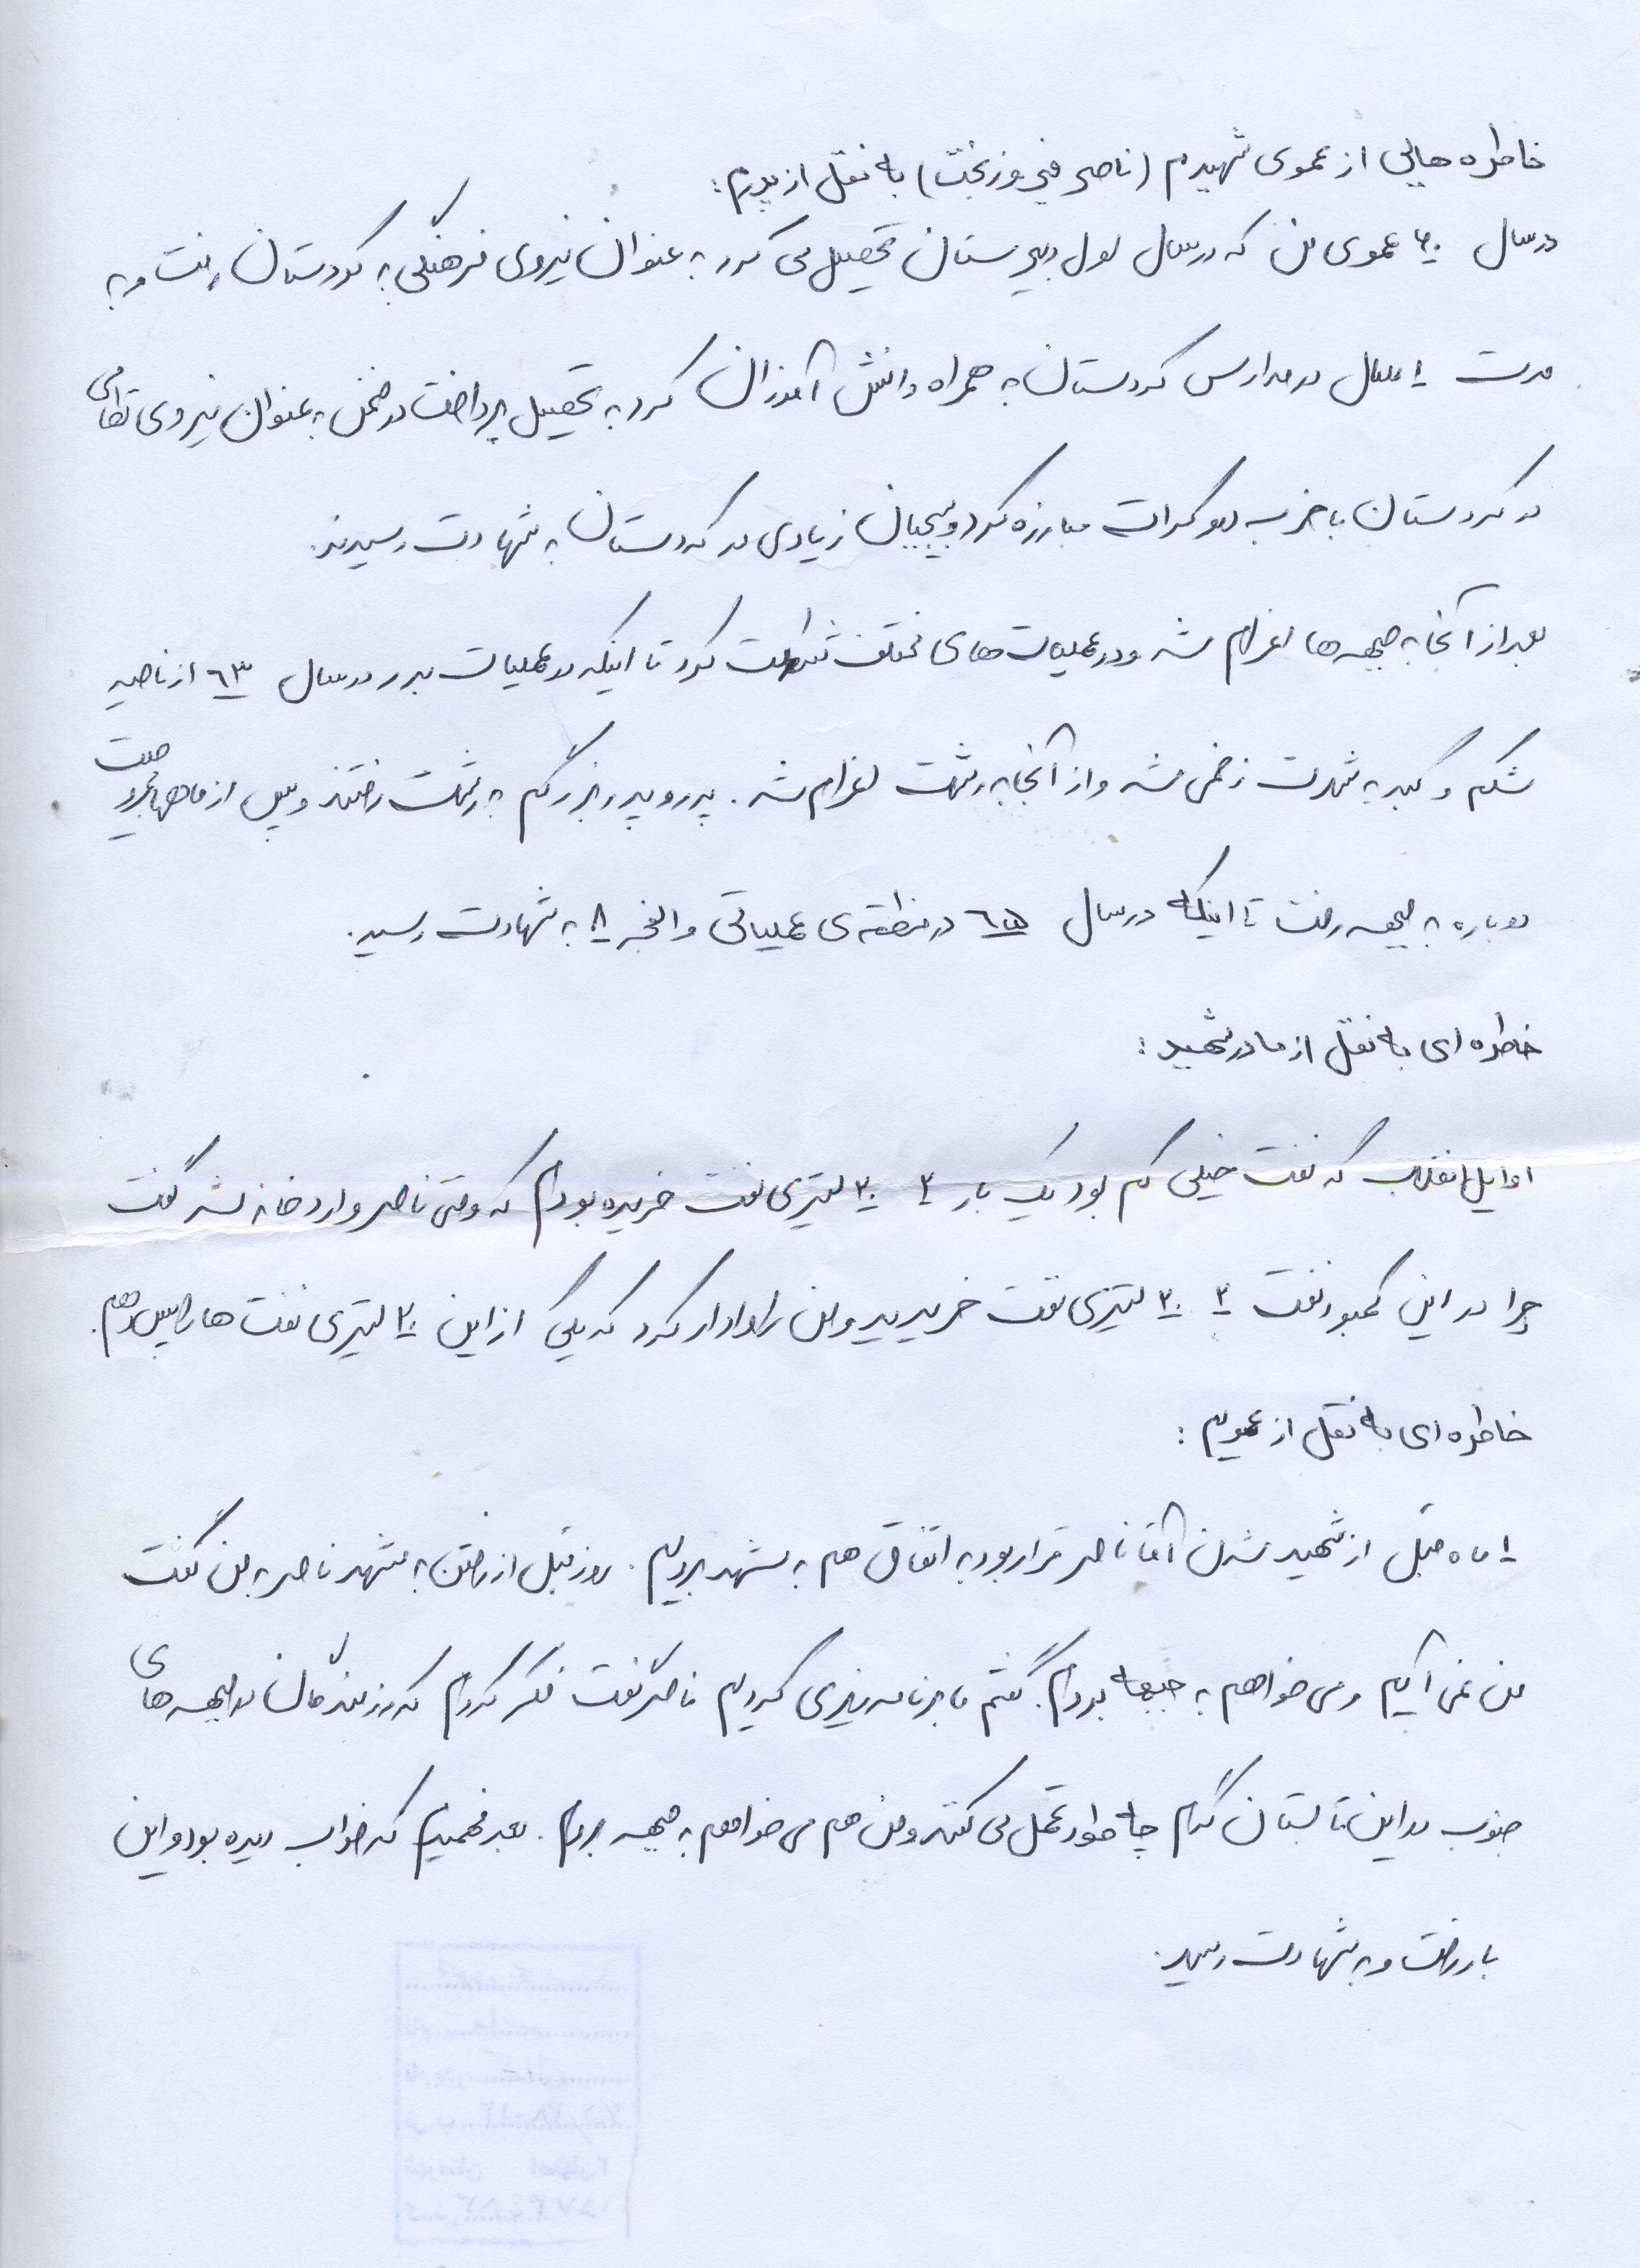 خاطره هایی از عموی شهیدم (ناصر فیروزبخت) به نقل از پدرم:
در سال ۶۰ عموی من که در سال اول دبیرستان تحصیل می کرد به عنوان نیروی فرهنگی به کردستان رفت و به
مدت ۱ سال در مدارس کردستان به همراه دانش آموزان کرد به تحصیل پرداخت در ضمن به عنوان نیروی نظامی
در کردستان با حزب دموکرات مبارزه کرد و بسیجیان زیادی در کردستان به شهادت رسیدند.
بعد از آنجا به جبهه ها اعزام شد و در عملیات های مختلف شرکت کرد تا اینکه در عملیات بدر در سال ۶۳ از ناحیه
شکم و کبد به شدت زخمی شد و از آنجا به رشت اعزام شد. پدر و پدر بزرگم به رشت رفتند و پس از ماهها بهبود
دوباره به جبهه رفت تا اینکه در سال ۶۵ در منطقه ی عملیاتی والفجر ۸ به شهادت رسید.
خاطره ای به نقل از مادر شهید:
اوایل انقلاب که نفت خیلی کم بود یک بار ۲ ۲۰ لیتری نفت خریده بودم که وقتی ناصر وارد خانه شد گفت
چرا در این کمبود نفت ۲ ۲۰ لیتری نفت خریدید و من را وادار کرد که یکی از این ۲۰ لیتری نفت ها را پس دهم.
خاطره ای به نقل از عمویم:
۱ ماه قبل از شهید شدن آقا ناصر قرار بود به اتفاق هم به مشهد برویم. روز قبل از رفتن به مشهد ناصر به من گفت
من نمی آیم و می خواهم به جبهه بروم. گفتم ما برنامه ریزی کردیم ناصر گفت فکر کردم که رزمندگان در جبهه های
جنوب در این تابستان گرم چه طور تحمل می کنند و من هم می خواهم به جبهه بروم. بعد فهمیدم که خواب دیده بود و این
بار رفت و به شهادت رسید.